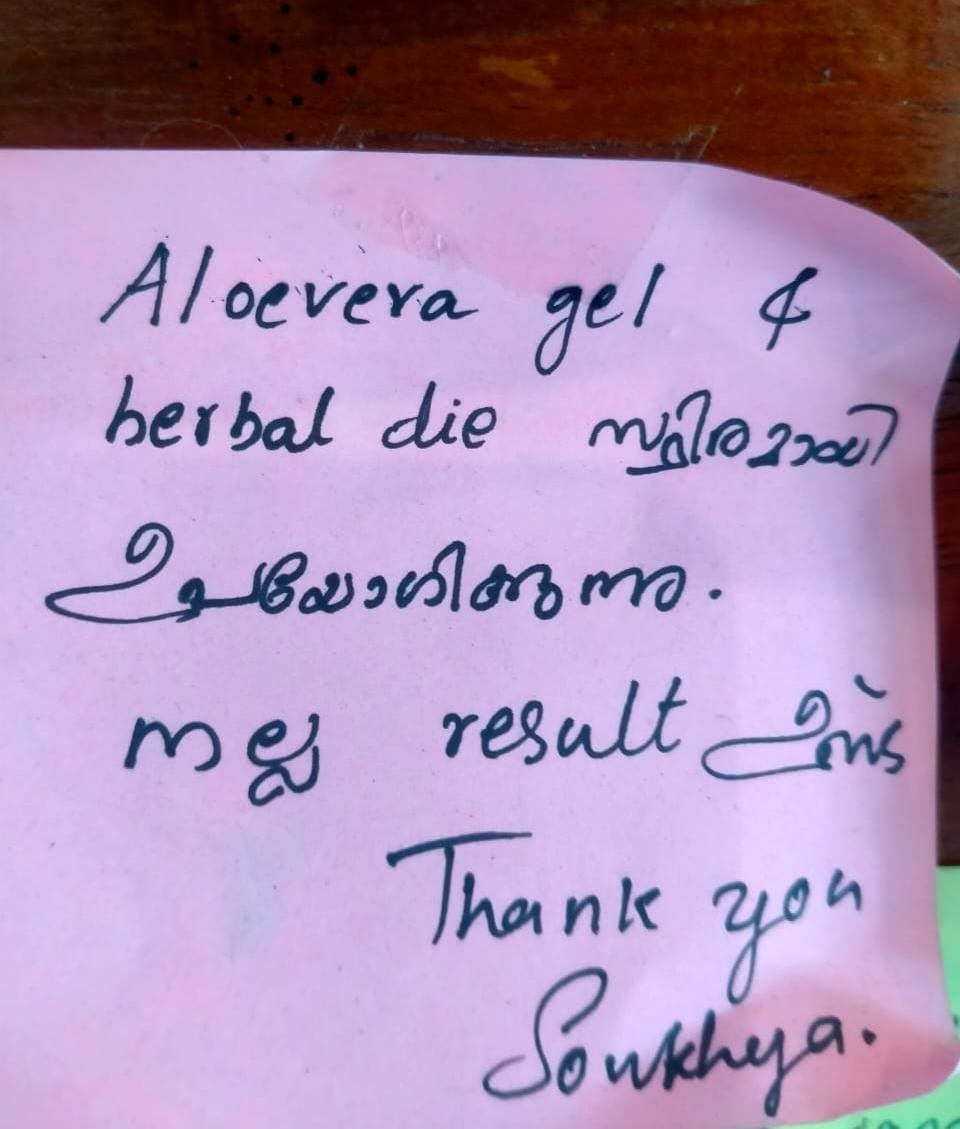 Aloevera gel &
herbal die സ്ഥിരമായി
ഉപയോഗിക്കുന്നു.
നല്ല result ഉണ്ട്
Thank you
Soukhya.